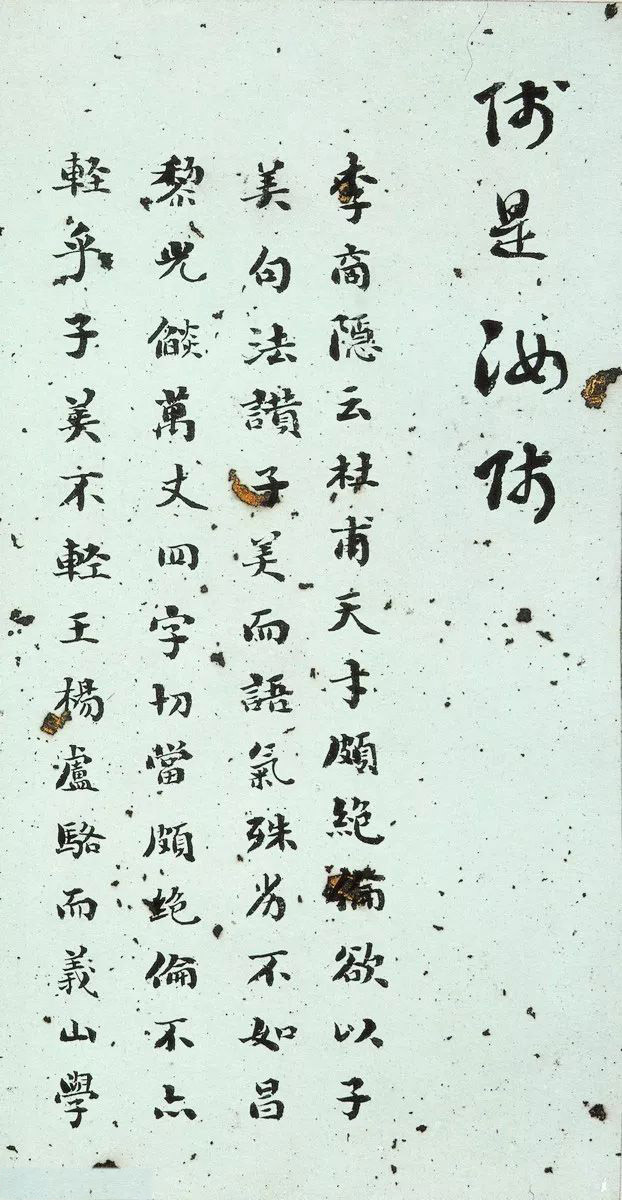 师是汝师
李商隱云杜甫天才頗絕倫欲以子
美句法讚子美而語氣殊劣不如昌
黎光燄萬丈四字切當頗絕倫不亦
軽乎子美不軽王楊盧駱而義山學